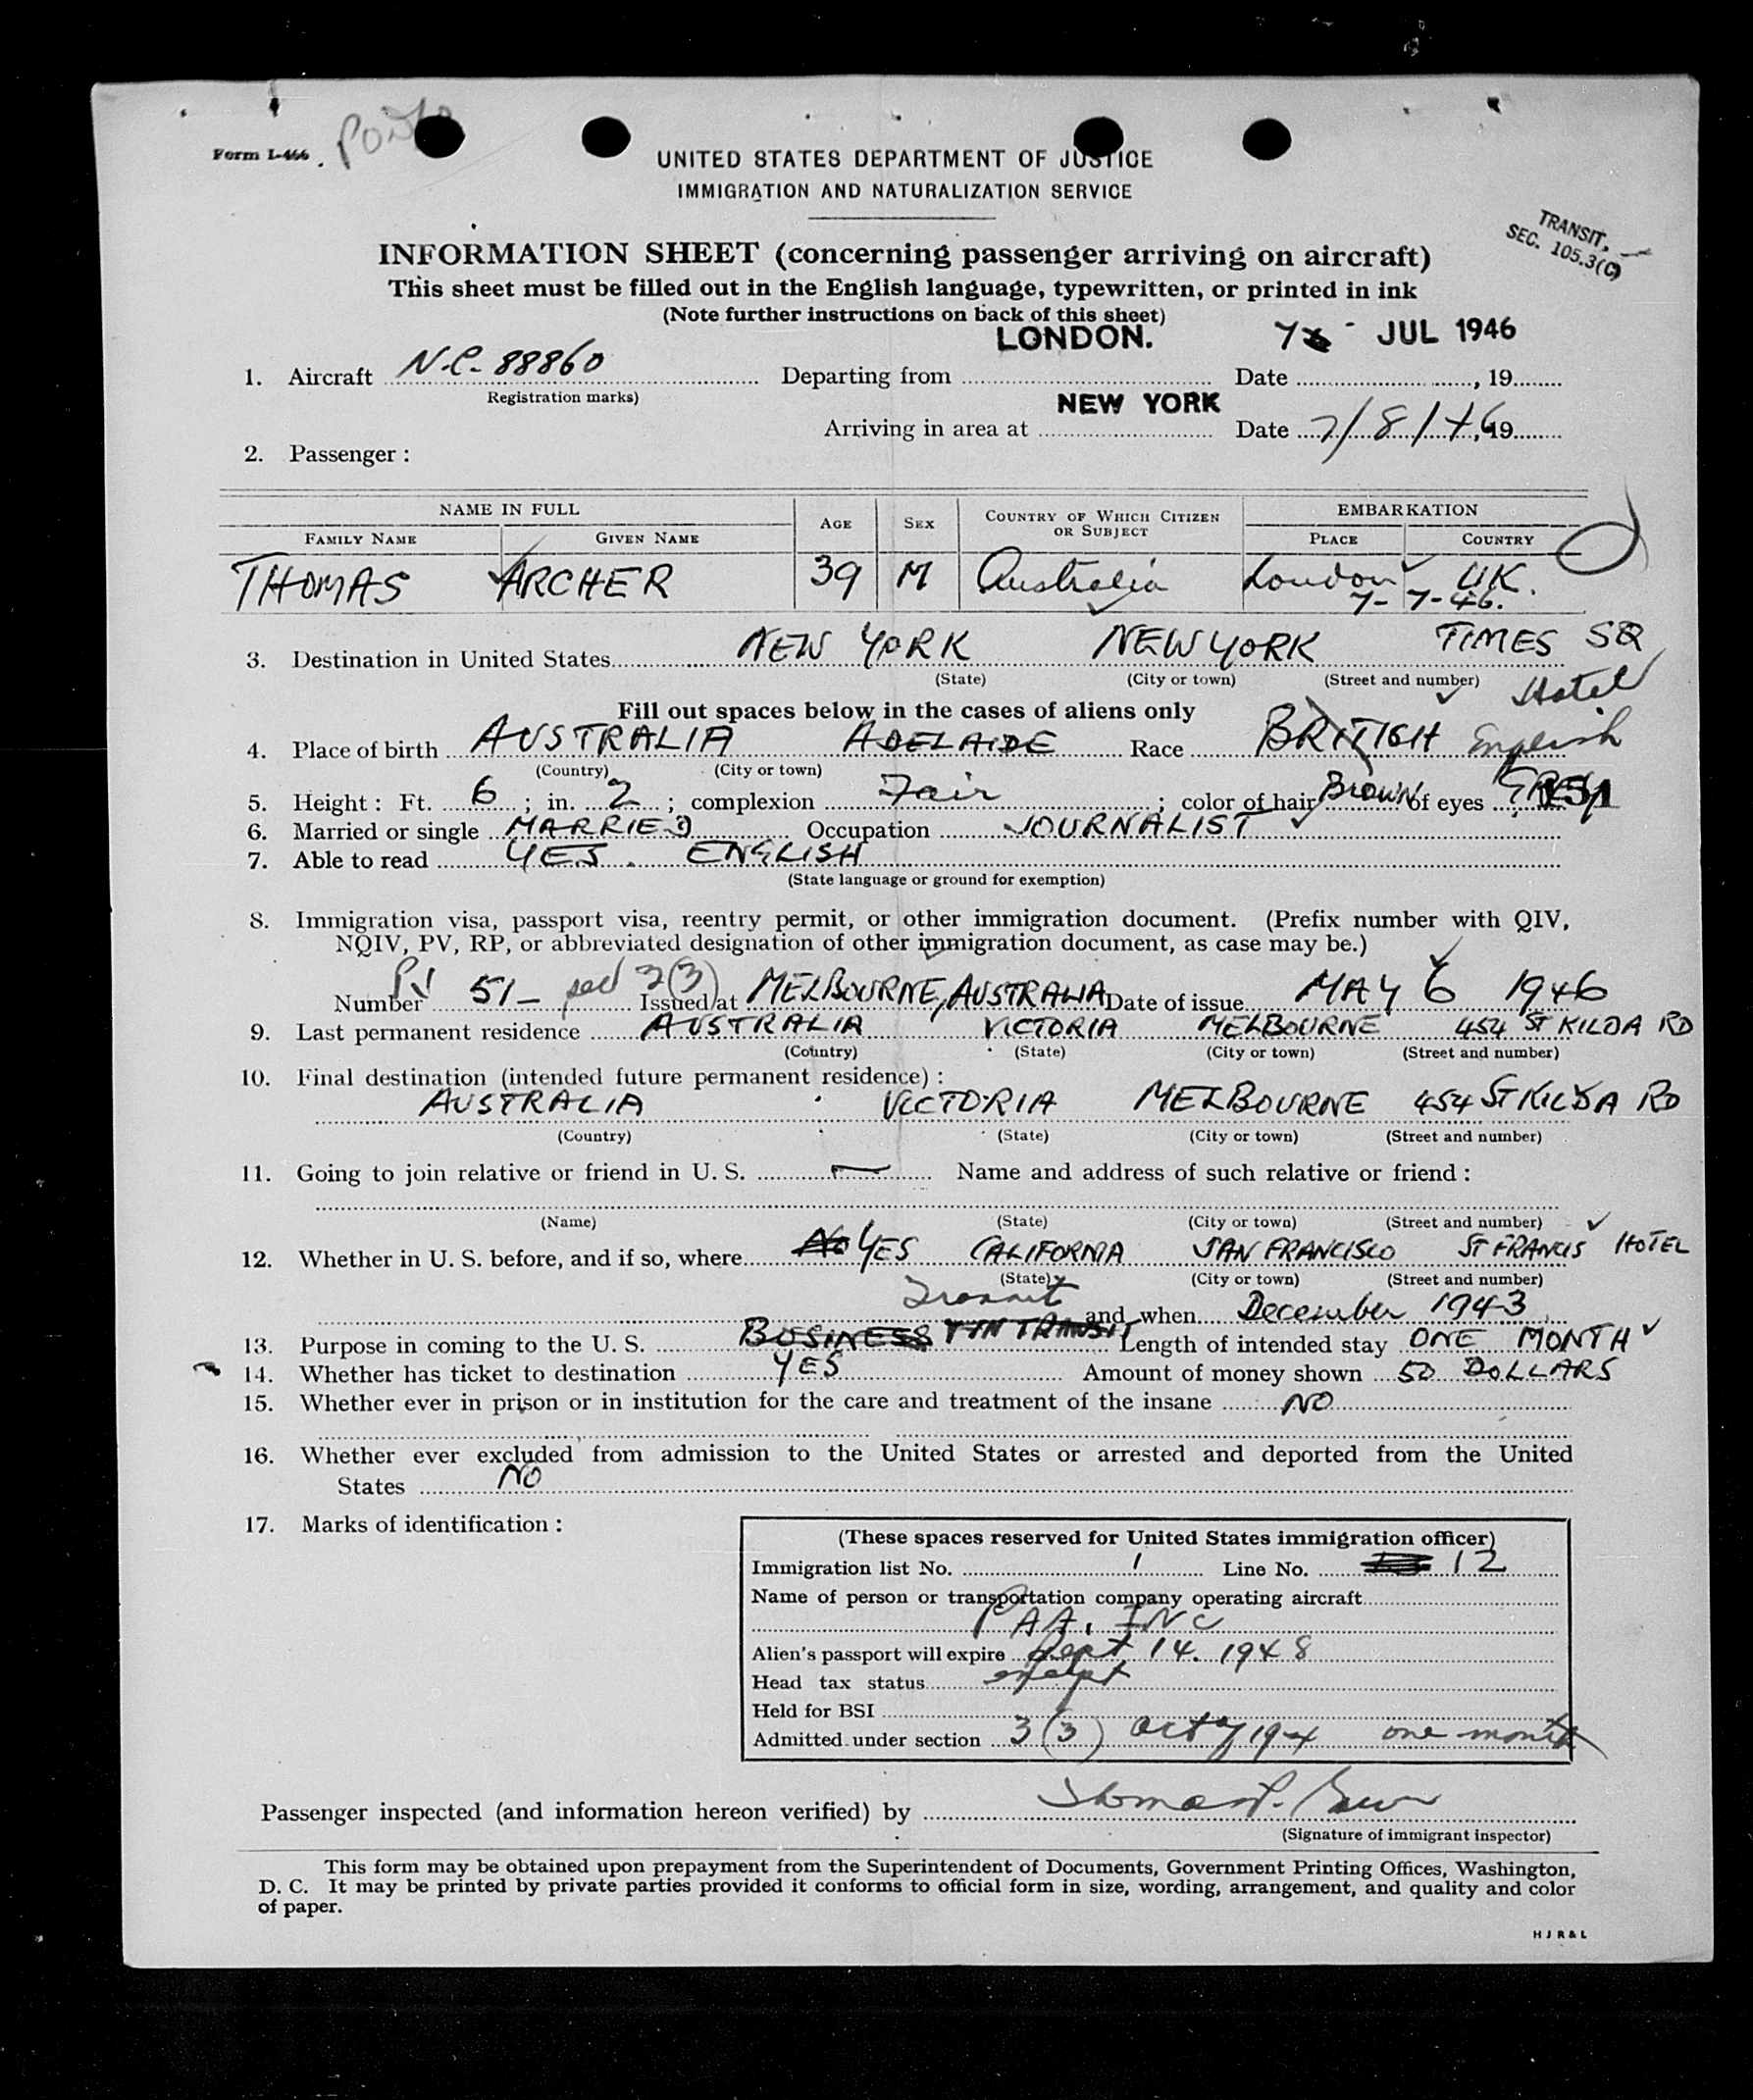 Form I-466
UNITED STATES DEPARTMENT OF JUSTICE
IMMIGRATION AND NATURALIZATION SERVICE
TRANSIT,
SEC. 105.3(C)
INFORMATION SHEET (concerning passenger arriving on aircraft)
This sheet must be filled out in the English language, typewritten, or printed in ink
(Note further instructions on back of this sheet)
LONDON. 7 - JUL 1946
1. Aircraft N.C. 88860 Departing from Date , 19
(Registration marks)
NEW YORK
Arriving in area at Date 7/8/46, 19
2. Passenger :
NAME IN FULL AGE SEX COUNTRY OF WHICH CITIZEN OR SUBJECT EMBARKATION
FAMILY NAME GIVEN NAME PLACE COUNTRY
THOMAS ARCHER 39 M Australia London UK.
7-7-46.
3. Destination in United States NEW YORK NEW YORK TIMES SQ
(State) (City or town) (Street and number) Hotel
Fill out spaces below in the cases of aliens only
4. Place of birth AUSTRALIA ADELAIDE Race BRITISH English
(Country) (City or town)
5. Height : Ft. 6 ; in. 2 ; complexion Fair ; color of hair BROWN of eyes GREY
6. Married or single MARRIED Occupation JOURNALIST
7. Able to read YES. ENGLISH
(State language or ground for exemption)
8. Immigration visa, passport visa, reentry permit, or other immigration document. (Prefix number with QIV,
NQIV, PV, RP, or abbreviated designation of other immigration document, as case may be.)
Number PV 51- sec 3(3) Issued at MELBOURNE, AUSTRALIA Date of issue MAY 6 1946
9. Last permanent residence AUSTRALIA VICTORIA MELBOURNE 454 ST KILDA RD
(Country) (State) (City or town) (Street and number)
10. Final destination (intended future permanent residence) :
AUSTRALIA VICTORIA MELBOURNE 454 ST KILDA RD
(Country) (State) (City or town) (Street and number)
11. Going to join relative or friend in U. S. — Name and address of such relative or friend :
(Name) (State) (City or town) (Street and number)
12. Whether in U. S. before, and if so, where No YES CALIFORNIA SAN FRANCISCO ST FRANCIS HOTEL
(State) (City or town) (Street and number)
Transit and when December 1943
13. Purpose in coming to the U. S. BUSINESS IN TRANSIT Length of intended stay ONE MONTH
14. Whether has ticket to destination YES Amount of money shown 50 DOLLARS
15. Whether ever in prison or in institution for the care and treatment of the insane NO
16. Whether ever excluded from admission to the United States or arrested and deported from the United
States NO
17. Marks of identification :
(These spaces reserved for United States immigration officer)
Immigration list No. 1 Line No. 12
Name of person or transportation company operating aircraft
PAA. INC
Alien's passport will expire Sept 14. 1948
Head tax status exempt
Held for BSI
Admitted under section 3(3) act of 1924 one month
Passenger inspected (and information hereon verified) by
(Signature of immigrant inspector)
This form may be obtained upon prepayment from the Superintendent of Documents, Government Printing Offices, Washington,
D. C. It may be printed by private parties provided it conforms to official form in size, wording, arrangement, and quality and color
of paper.
H J R & L